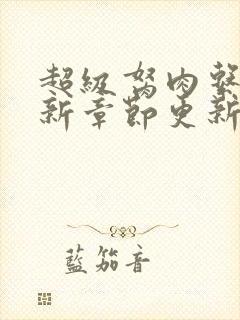 超級弩肉㢡
新章節更新
藍笳音